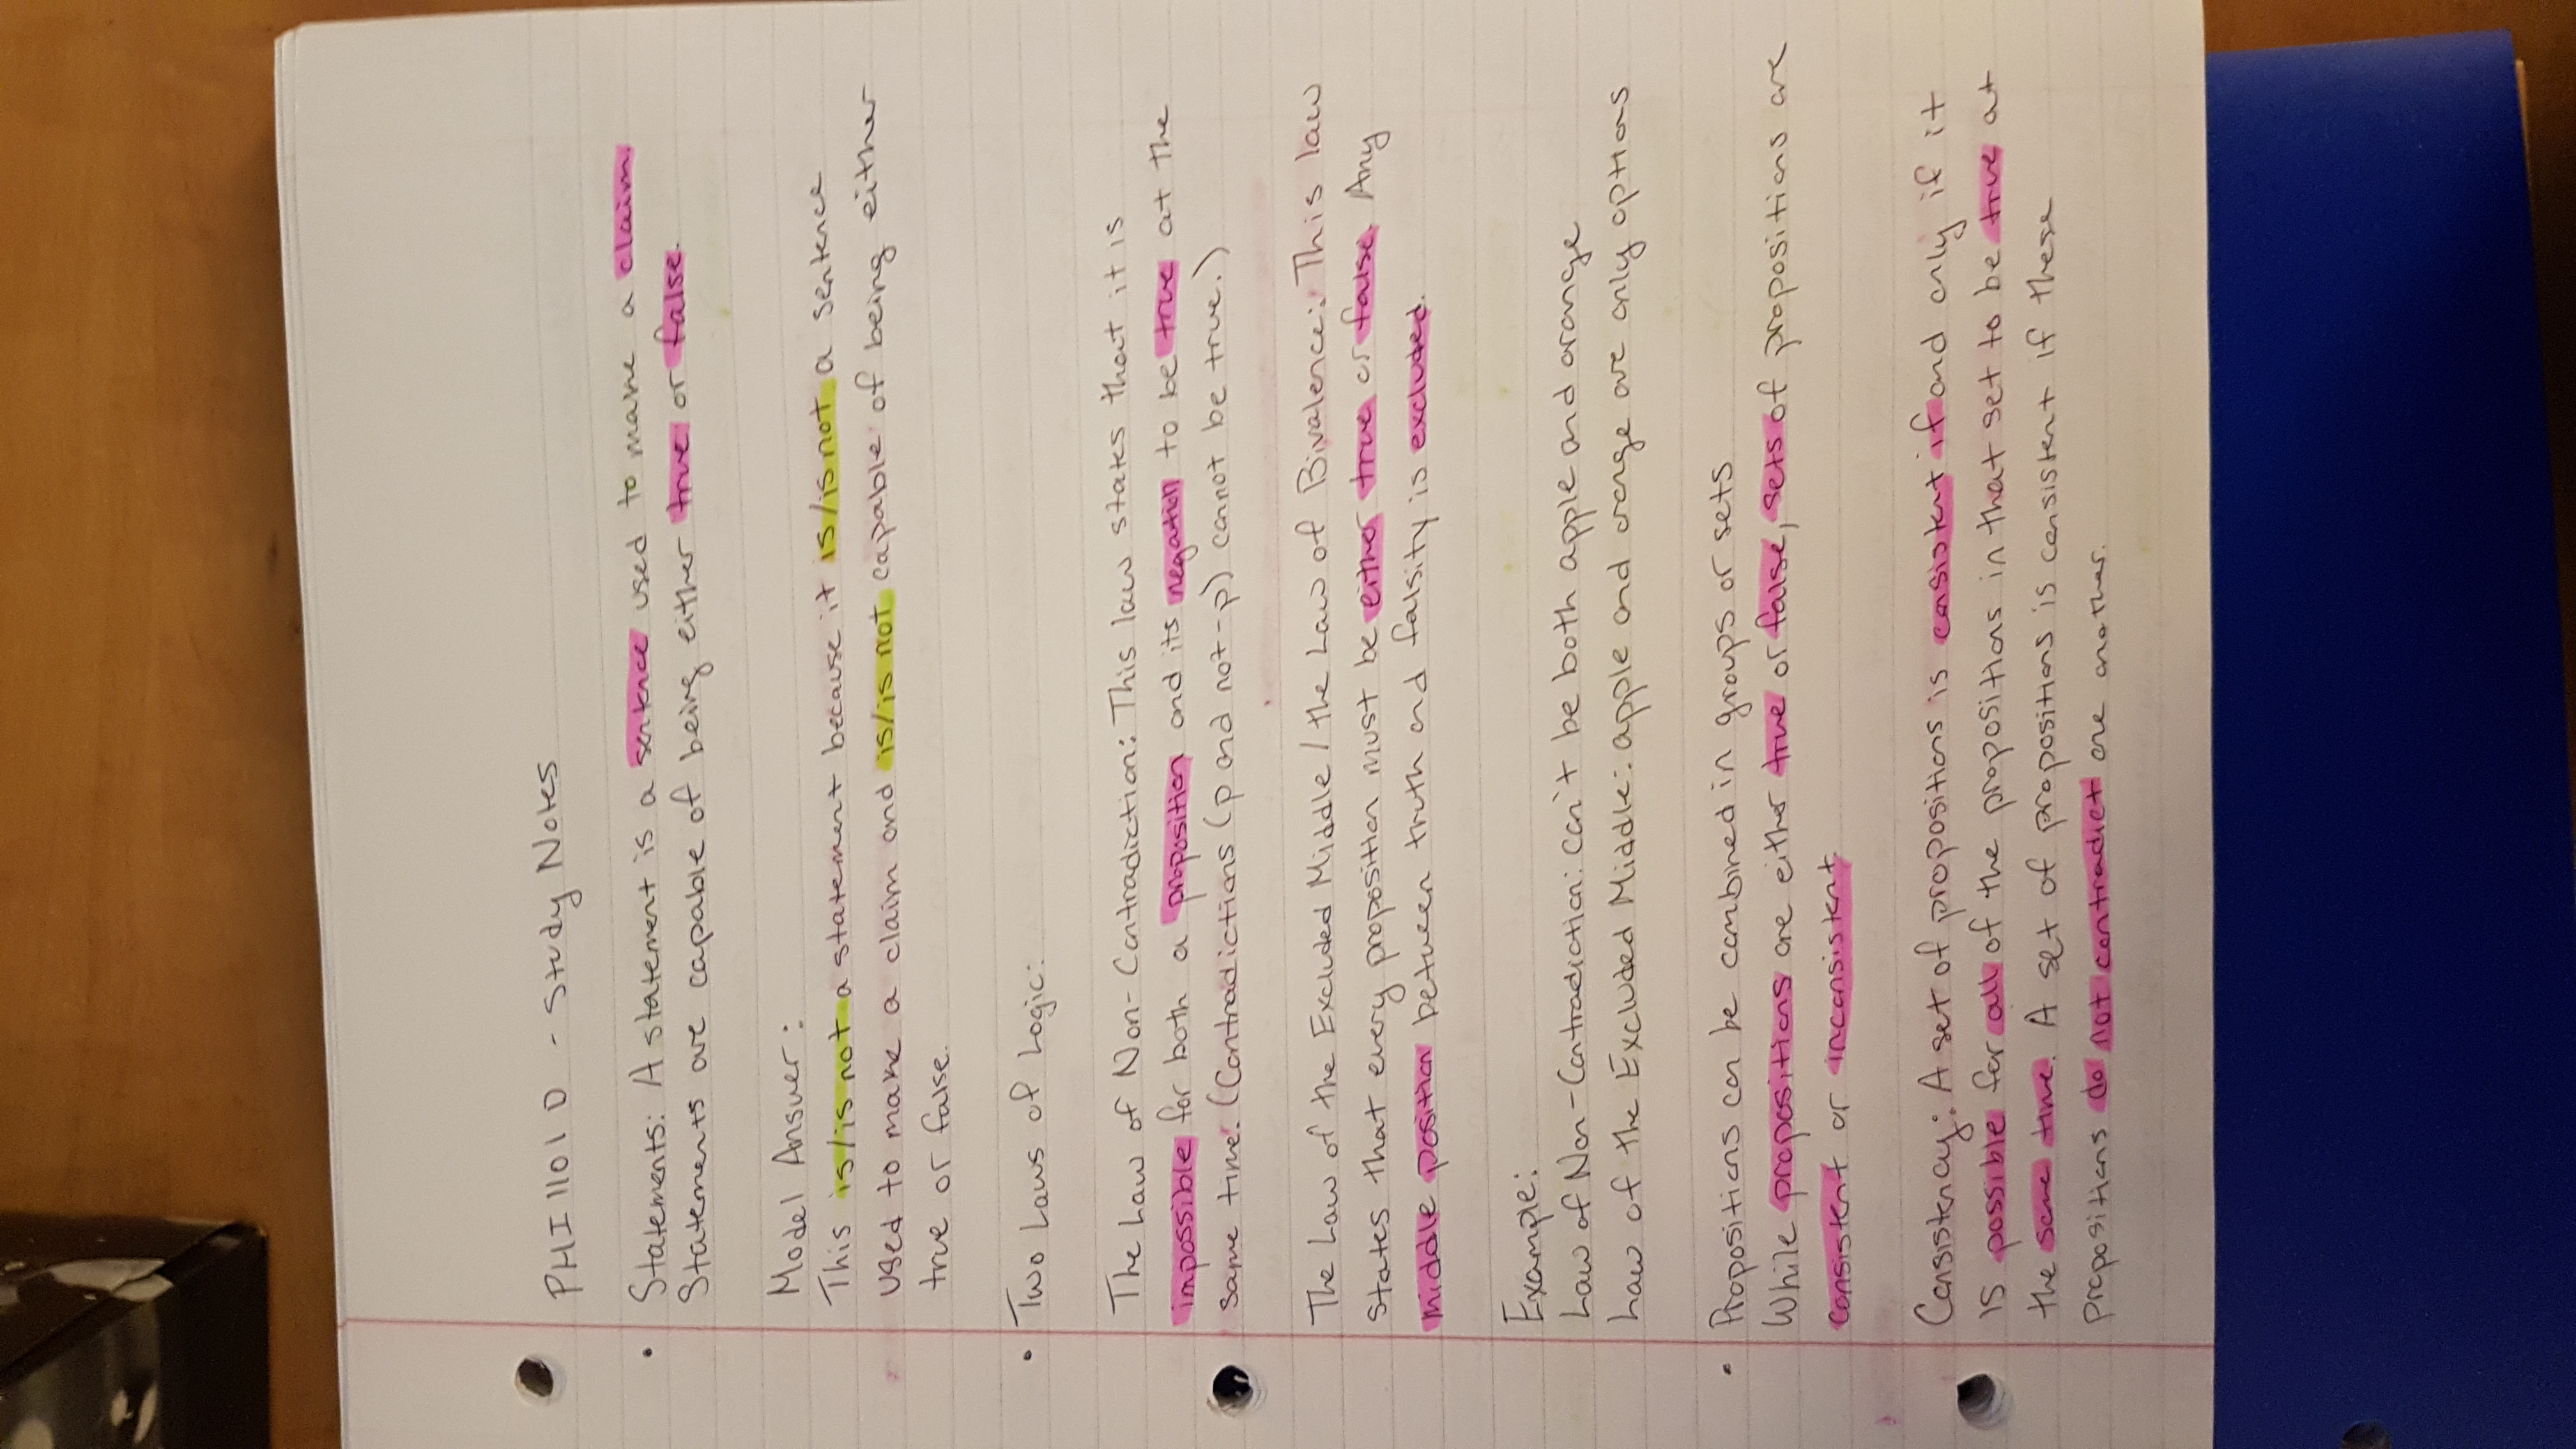 PHI 1101 D - Study Notes
• Statements: A statement is a sentence used to make a claim.
Statements are capable of being either true or false.
Model Answer:
This is/is not a statement because it is/is not a sentence
used to make a claim and is/is not capable of being either
true or false.
• Two Laws of Logic:
The Law of Non-Contradiction: This law states that it is
impossible for both a proposition and its negation to be true at the
same time. (Contradictions (p and not-p) cannot be true.)
The Law of the Excluded Middle / the Law of Bivalence: This law
states that every proposition must be either true or false. Any
middle position between truth and falsity is excluded.
Example:
Law of Non-Contradiction: can't be both apple and orange
Law of the Excluded Middle: apple and orange are only options
• Propositions can be combined in groups or sets
While propositions are either true or false, sets of propositions are
consistent or inconsistent
Consistency: A set of propositions is consistent if and only if it
is possible for all of the propositions in that set to be true at
the same time. A set of propositions is consistent if these
propositions do not contradict one another.